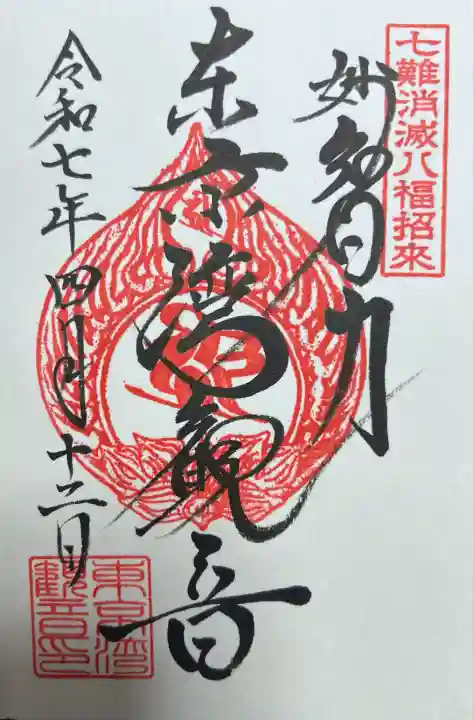 七難消滅八福招來
妙智力
東京湾観音
令和七年四月十二日
東京湾
観音印